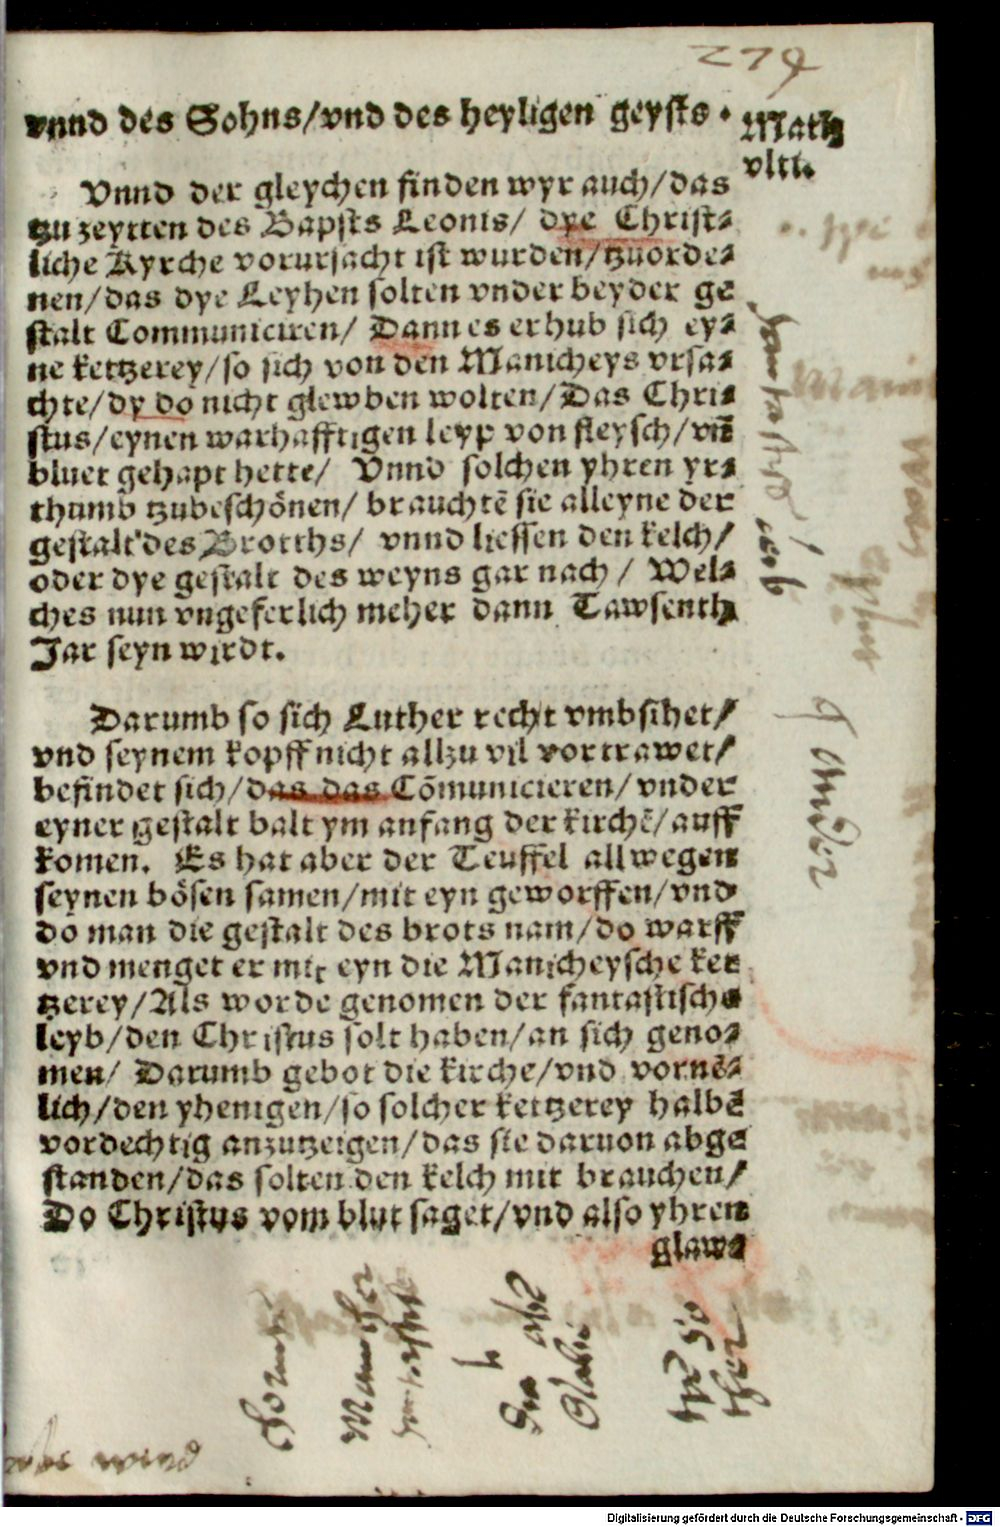 279
vnnd des Sohns/vnd des heyligen geysts.
Math
vlti.
Vnnd der gleychen finden wyr auch/das
tzu zeytten des Bapsts Leonis/ dye Christ⸗
liche Kyrche vorursacht ist wurden/tzuorde⸗
nen/das dye Leyhen solten vnder beyder ge
stalt Communiciren/ Dann es erhub sich ey⸗
ne kettzerey/so sich von den Manicheys vrsa⸗
chte/dy do nicht glewben wolten/Das Chri⸗
stus/eynen warhafftigen leyp von fleysch/vñ
bluet gehapt hette/ Vnnd solchen yhren yr⸗
thumb tzubeschönen/ brauchtē sie alleyne der
gestalt des Brotths/ vnnd liessen den kelch/
oder dye gestalt des weyns gar nach/ Wel⸗
ches nun vngeferlich meher dann Tawsenth
Jar seyn wirdt.
Darumb so sich Luther recht vmbsihet/
vnd seynem kopff nicht allzu vil vortrawet/
befindet sich/das das Cōmunicieren/vnder
eyner gestalt balt ym anfang der kirchē/auff
komen. Es hat aber der Teuffel allwegen
seynen bösen samen/mit eyn geworffen/vnd
do man die gestalt des brots nam/do warff
vnd menget er mit eyn die Manicheysche ket
tzerey/Als worde genomen der fantastische
leyb/den Christus solt haben/an sich geno⸗
men/ Darumb gebot die kirche/vnd vornē⸗
lich/den yhenigen/so solcher kettzerey halbē
vordechtig anzutzeigen/das sie daruon abge
standen/das solten den kelch mit brauchen/
Do Christus vom blut saget/vnd also yhren
glaw⸗
Digitalisierung gefördert durch die Deutsche Forschungsgemeinschaft - DFG